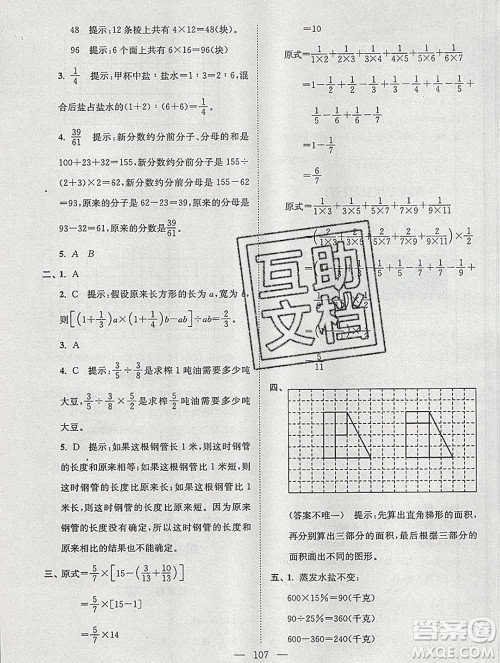 48 提示:12条棱上共有4×12=48(块)
96 提示:6个面上共有6×16=96(块)
3. 1/4 提示:甲杯中盐:盐水=1:3=2:6,混
合后盐占盐水的(1+2):(6+6)=1/4。
4. 39/61 提示:新分数约分前分子、分母的和是
100+23+32=155,新分数约分前分子是155÷
(2+3)×2=62,新分数约分前分母是155-62
=93,原来的分数的分子是62-23=39,分母是
93-32=61,原来的分数是39/61。
5. A B
二、1. A
2. C 提示:假设原来长方形的长为a,宽为b,
则[(1+1/3)a×(1+1/4)b-ab]÷ab=2/3。
3. A
4. C 提示:3/5÷3/8是求榨1吨油需要多少吨
大豆,2/5÷3/8是求榨2/5吨油需要多少吨
大豆。
5. D 提示:如果这根钢管长1米,则这时钢管
的长度与原来相等;如果这根钢管比1米短,则
这时钢管的长度比原来短;如果这根钢管比1米
长,则这时钢管的长度比原来长。因为原来
钢管的长度不能确定,所以这时钢管的长度与
原来相比的结果也不能确定。
三、原式=5/7×[15-(3/13+10/13)]
=5/7×[15-1]
=5/7×14
=10
原式=1/(1×2)+1/(2×3)+1/(3×4)+1/(4×5)+1/(5×6)+1/(6×7)
=1-1/7
=6/7
原式=1/(1×3)+1/(3×5)+1/(5×7)+1/(7×9)+1/(9×11)
互助
文档
5/11
四、
(答案不唯一) 提示:先算出直角梯形的面积,
再分别算出三部分的面积,再根据三部分的
面积画出不同的图形。
五、1. 蒸发水盐不变:
600×15%=90(千克)
90÷25%=360(千克)
600-360=240(千克)
107
答案圈
MXQE.COM